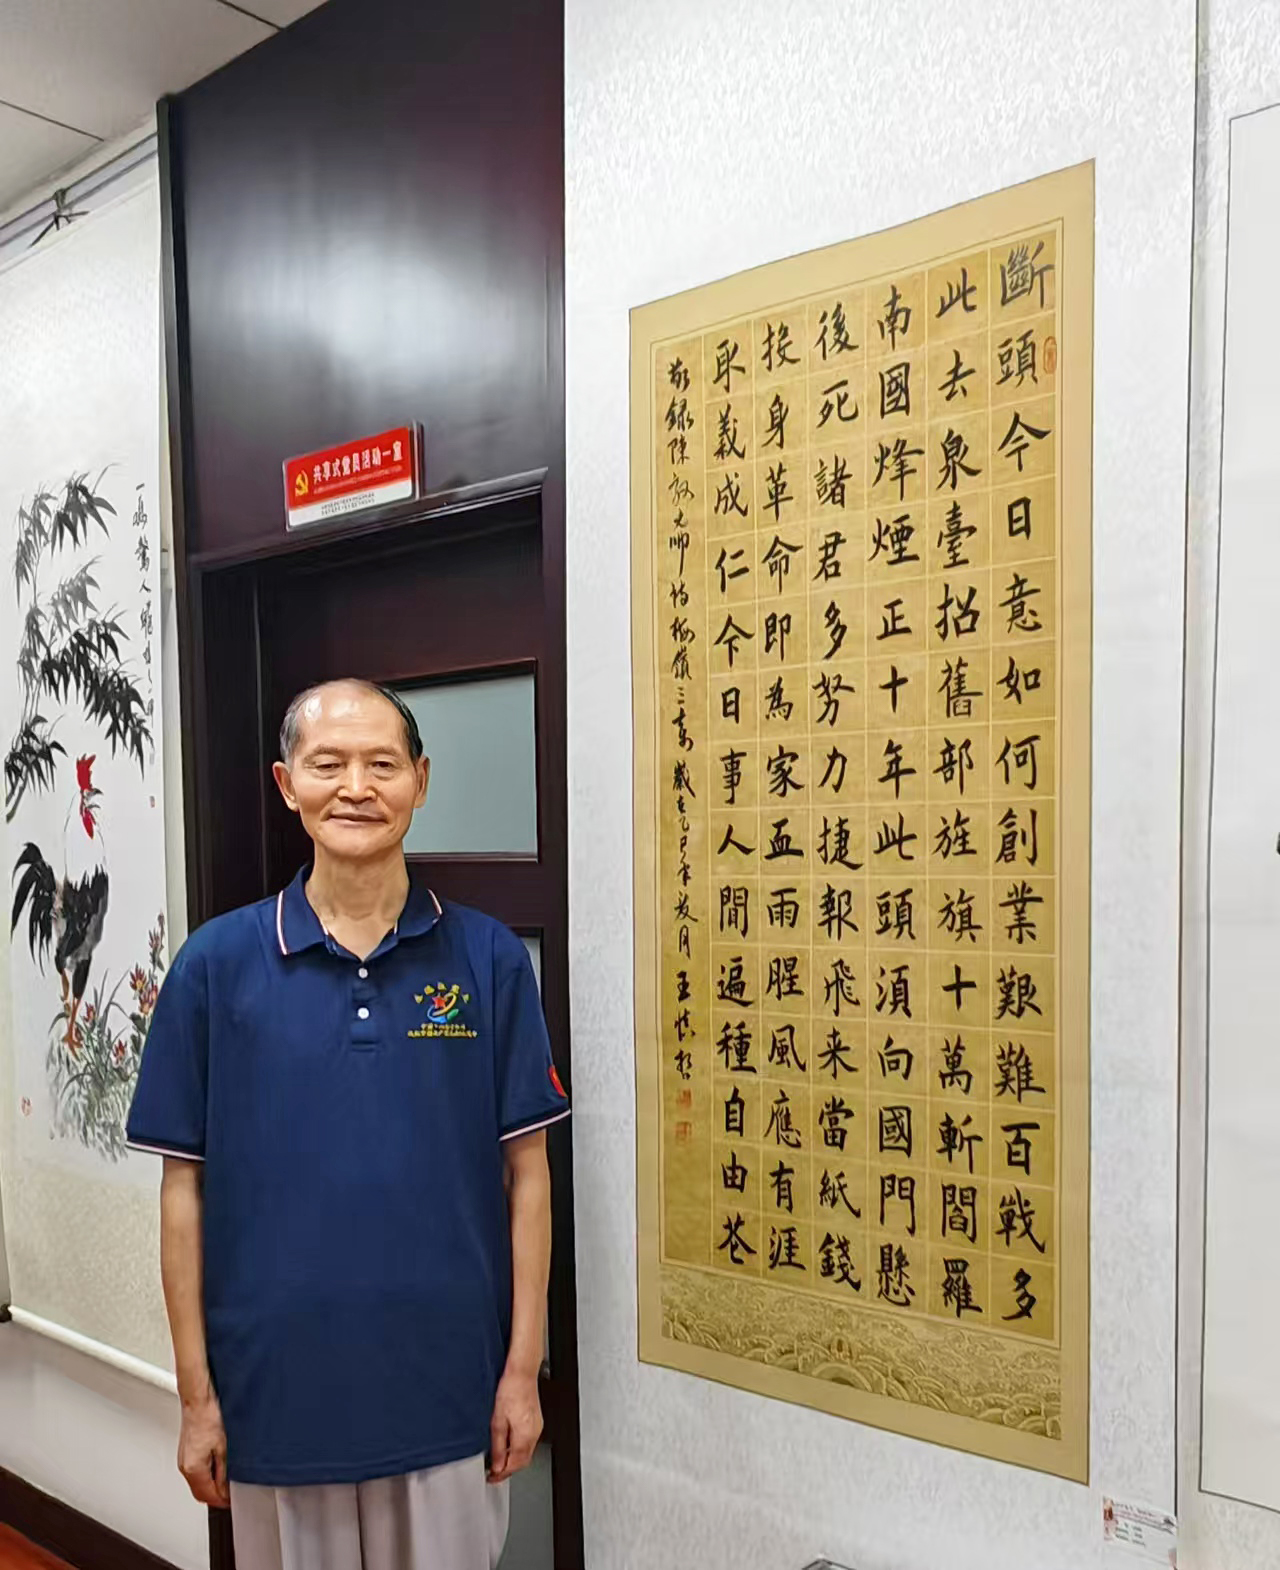 共享式党员活动一室
一鳴驚人
斷頭今日意如何創業艱難百戰多
此去泉臺招舊部旌旗十萬斬閻羅
南國烽煙正十年此頭須向國門懸
後死諸君多努力捷報飛来當紙錢
投身革命即為家血雨腥風應有涯
取義成仁今日事人間遍種自由花
敬録陳毅元帥詩梅嶺三章 歲在乙巳年夏月 王慎哲